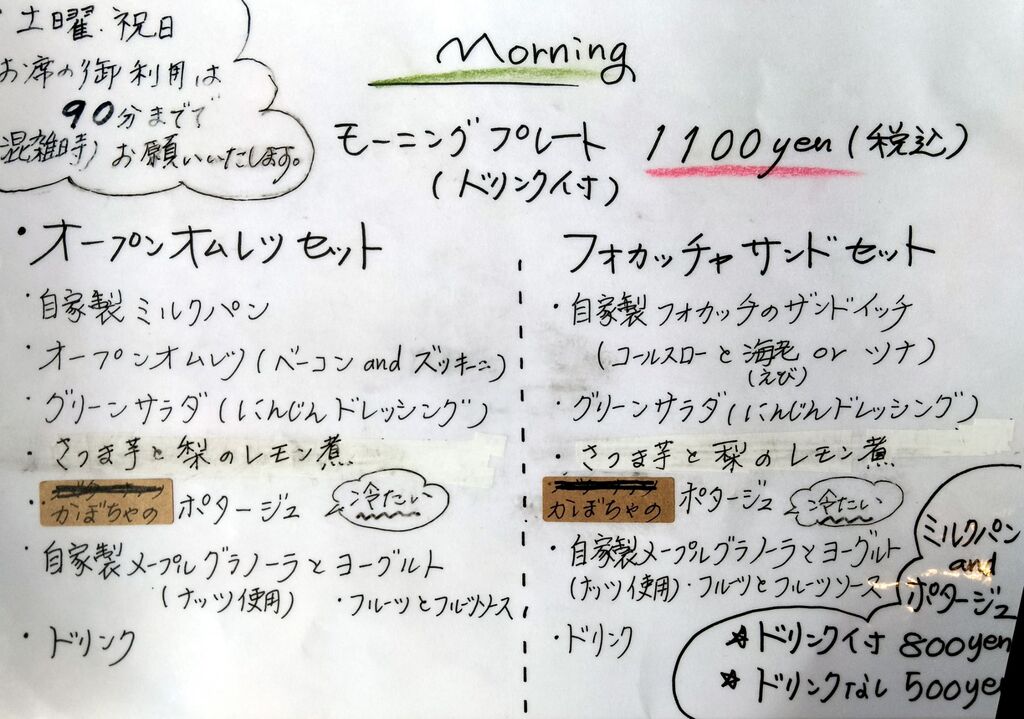 ・土曜・祝日
お席の御利用は
90分までで
(混雑時) お願いいたします。
Morning
モーニングプレート 1100yen (税込)
(ドリンク付)
・オープンオムレツセット
・自家製ミルクパン
・オープンオムレツ(ベーコン and ズッキーニ)
・グリーンサラダ(にんじんドレッシング)
・さつま芋と梨のレモン煮
・かぼちゃのポタージュ 冷たい
・自家製メープルグラノーラとヨーグルト
(ナッツ使用) ・フルーツとフルーツソース
・ドリンク
フォカッチャサンドセット
・自家製フォカッチのサンドイッチ
(コールスローと海老 or ツナ)
(えび)
・グリーンサラダ(にんじんドレッシング)
・さつま芋と梨のレモン煮
かぼちゃのポタージュ 冷たい
・自家製メープルグラノーラとヨーグルト
(ナッツ使用)・フルーツとフルーツソース
・ドリンク
ミルクパン
and
ポタージュ
☆ドリンク付 800yen
☆ドリンクなし 500yen